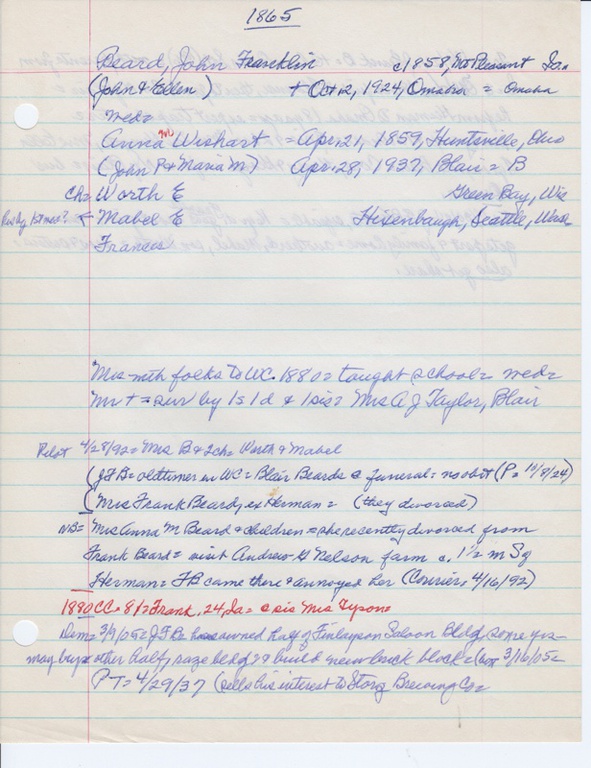 1865
Beard, John Franklin c1858, Mt Pleasant Ia.
(John & Ellen) + Oct 12, 1924, Omaha = Omaha
wed=
Anna M Wishart = Apr. 21, 1859, Huntsville, Ohio
(John P & Maria M) Apr. 28, 1937, Blair = B
Ch= Worth E Green Bay, Wis
1st mar? Mabel E Hixenbaugh, Seattle, Wash
Frances
Mrs with folks to WC 1880 = taught school = wed=
Mr + = sur by 1s 1d & 1sis = Mrs A J Taylor, Blair
Pilot 4/28/92 = Mrs B & 2ch = Worth & Mabel
(JFB = oldtimer in WC = Blair Beards @ funeral = no obit (P = 10/8/24)
(Mrs Frank Beard, ex Herman = (they divorced)
NB= Mrs Anna M Beard & children = she recently divorced from
Frank Beard = visit Andrew G Nelson farm c. 1½ m Sq
Herman = FB came there & annoyed her (Courier, 4/16/92)
1880 CC = 81 = Frank, 24, Ia = @ sis Mrs Tyson=
Dem= 3/9/05 = JFB has owned half of Finlayson Saloon Bldg some yrs
may buy other half, raze bldg & build new brick block = 3/16/05=
PT = 4/29/37 (sells his interest to Storz Brewing Co=